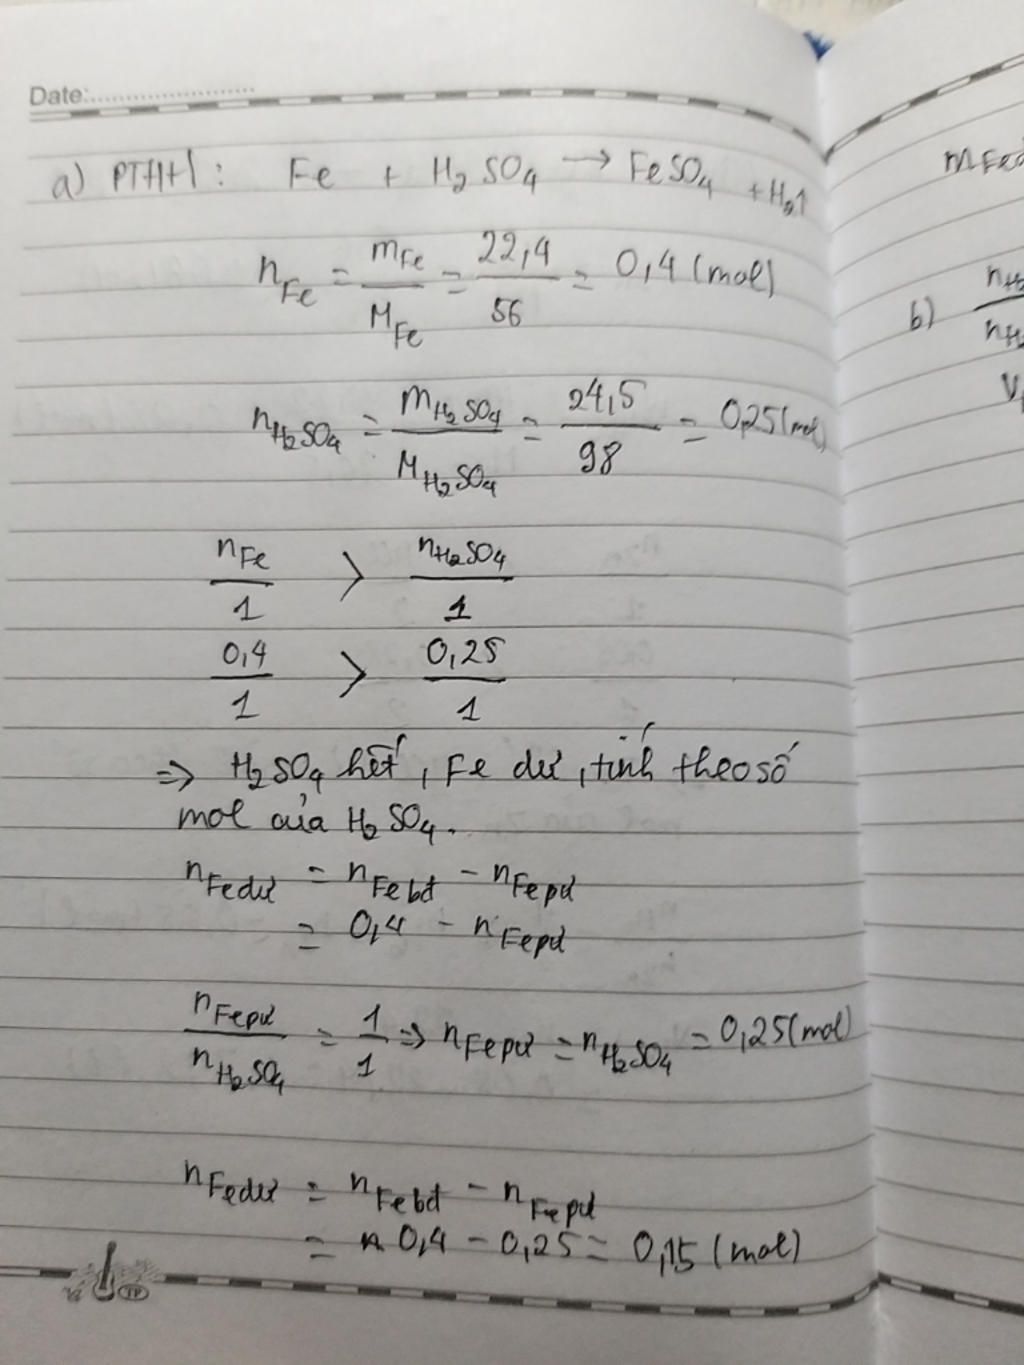 Date:
a) PTHH: Fe + H₂SO₄ → FeSO₄ + H₂↑
n_Fe = m_Fe / M_Fe = 22,4 / 56 = 0,4 (mol)
n_H₂SO₄ = m_H₂SO₄ / M_H₂SO₄ = 24,5 / 98 = 0,25 (mol)
n_Fe / 1 > n_H₂SO₄ / 1
0,4 / 1 > 0,25 / 1
=> H₂SO₄ hết, Fe dư, tính theo số
mol của H₂SO₄.
n_Fe dư = n_Fe bđ - n_Fe pư
= 0,4 - n_Fe pư
n_Fe pư / n_H₂SO₄ = 1 / 1 => n_Fe pư = n_H₂SO₄ = 0,25 (mol)
n_Fe dư = n_Fe bđ - n_Fe pư
= 0,4 - 0,25 = 0,15 (mol)
TP
b)